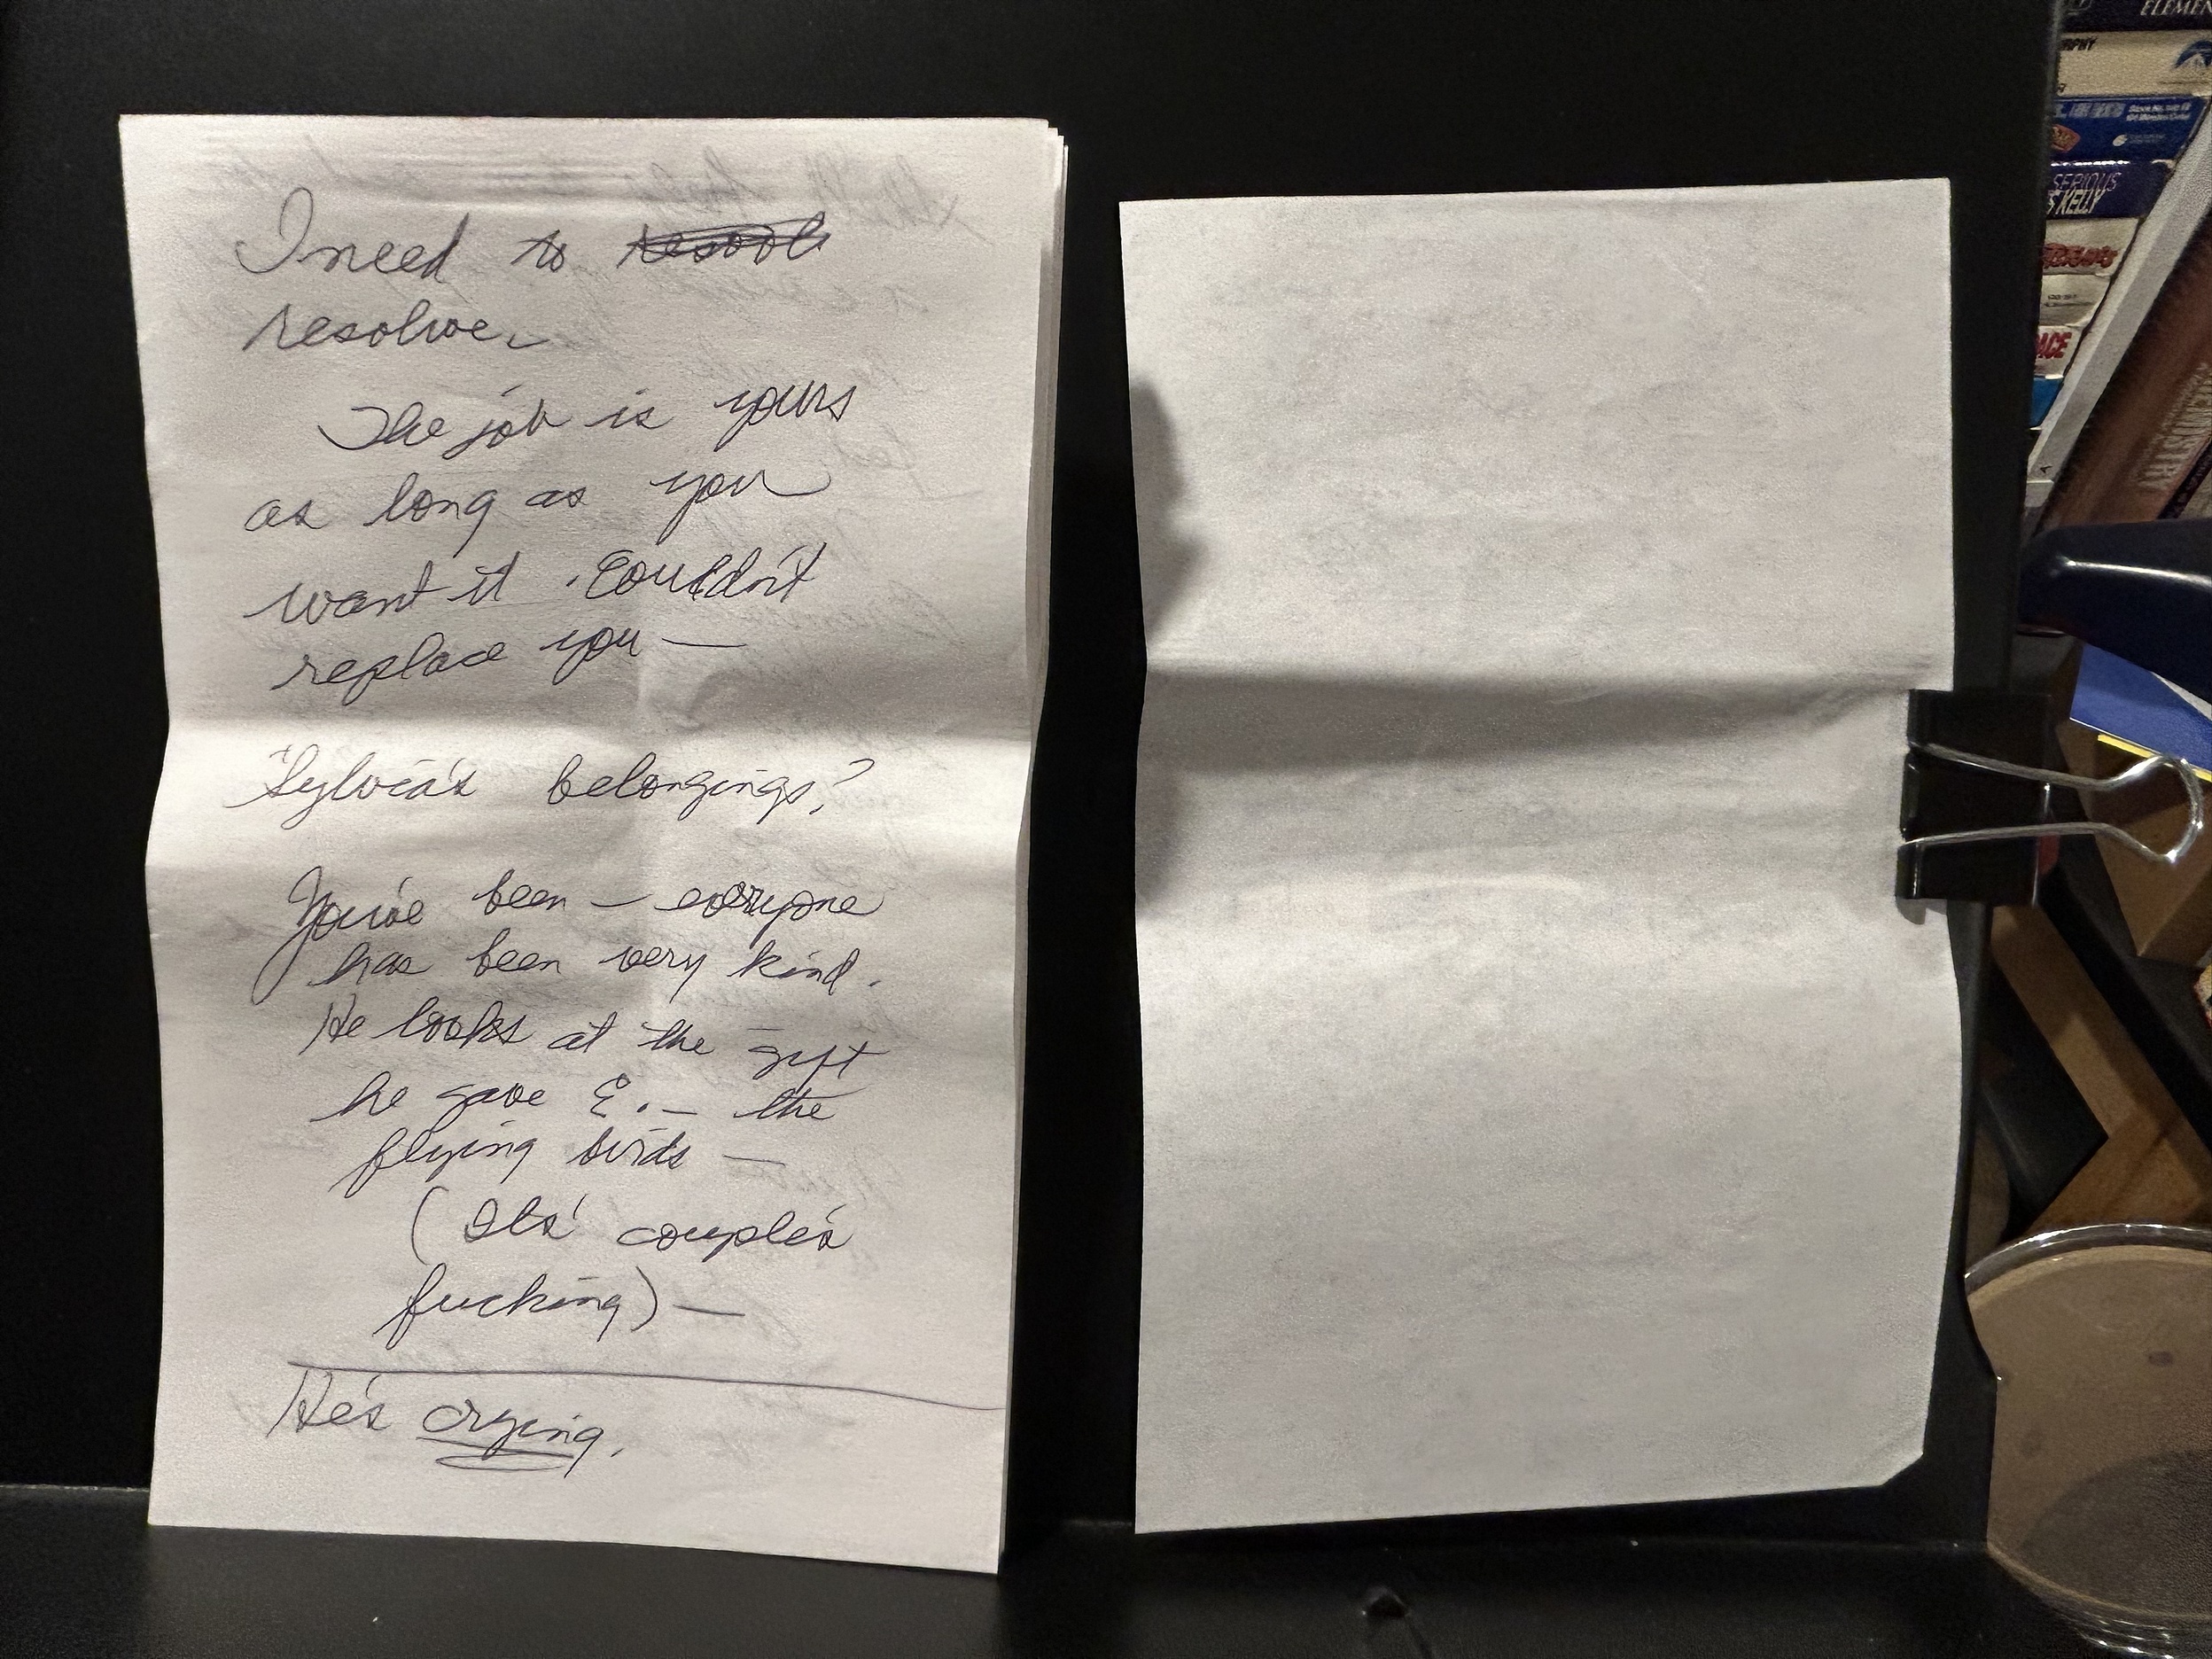 I need to resolve
resolve.
The job is yours
as long as you
want it. Couldn't
replace you —
Sylvia's belongings?
You've been — everyone
has been very kind.
He looks at the gift
he gave E. — the
flying birds —
(Its' couple's
fucking) —
He's crying.
ELEMEN
RPHY
SERIOUS
KELLY
ACE